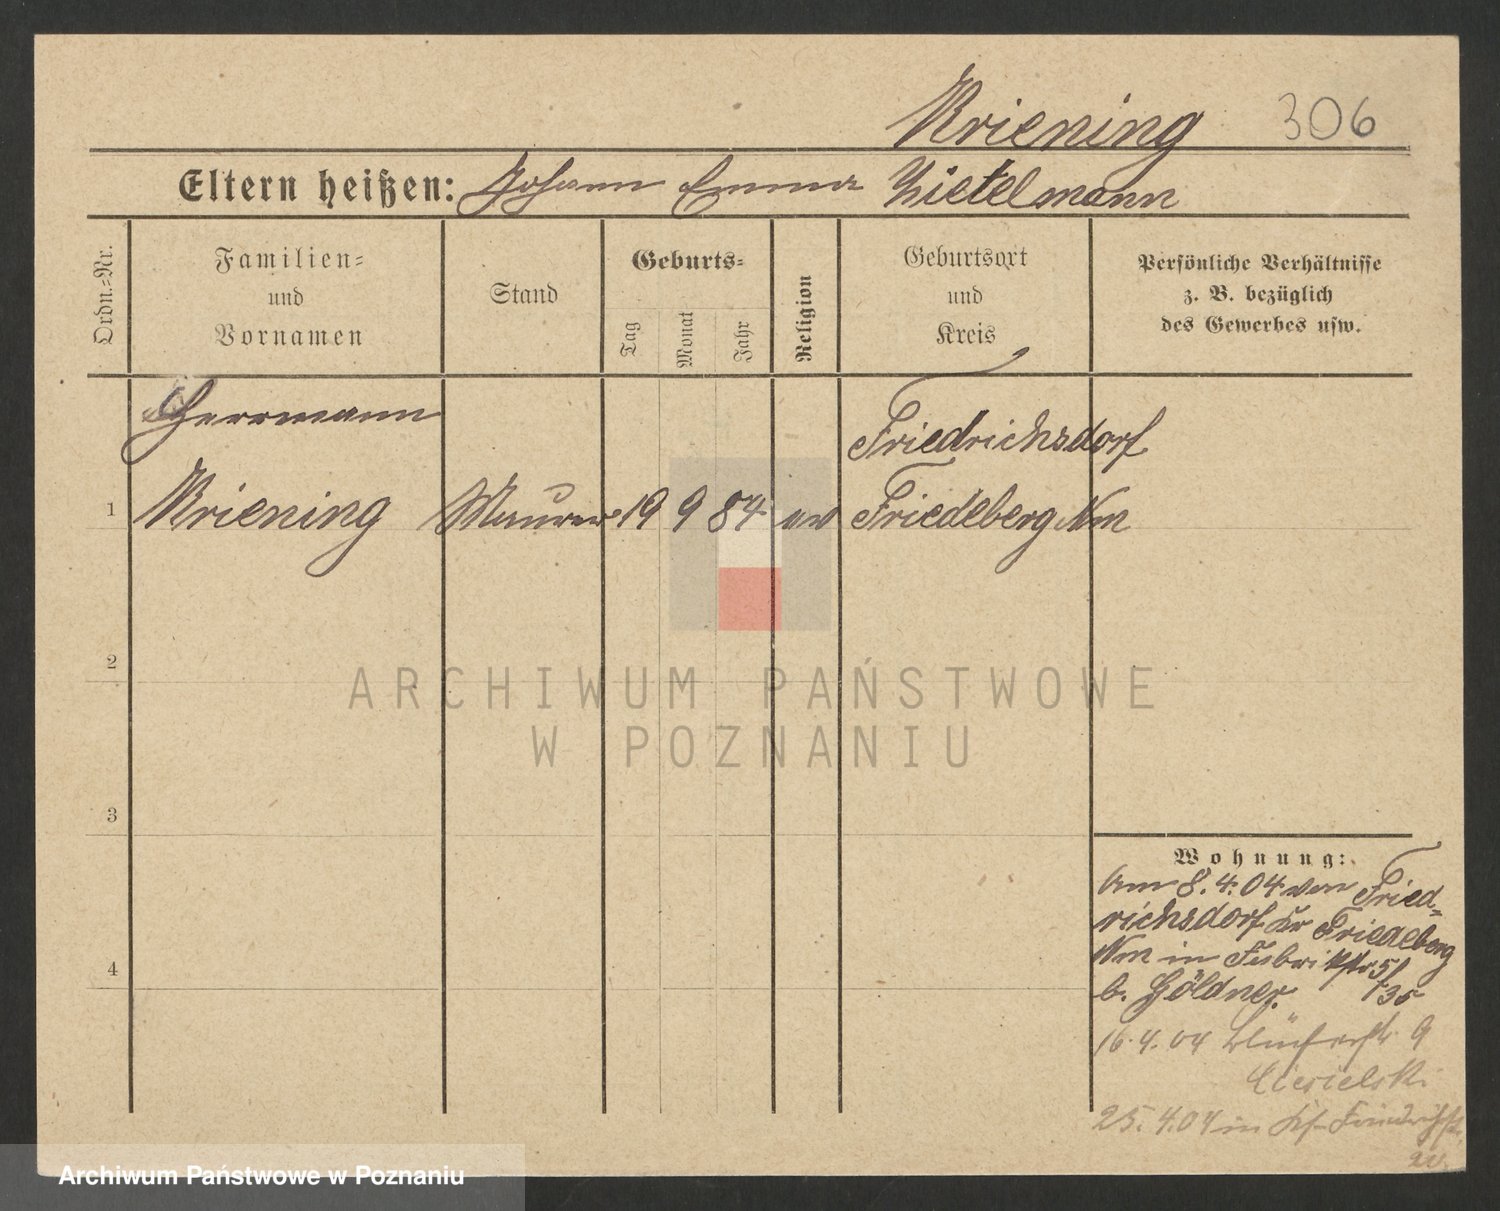 Kriening 306
Eltern heißen: Johann Emma Zietelmann
Ordn.=Nr.
Familien=
und
Vornamen
Stand
Geburts=
Tag
Monat
Jahr
Religion
Geburtsort
und
Kreis
Persönliche Verhältnisse
z. B. bezüglich
des Gewerbes usw.
Herrmann
Friedrichsdorf
1 Kriening Maurer 19 9 84 ev Friedeberg Nm
2
3
4
Wohnung:
Am 8.4.04 von Fried=
richsdorf Kr Friedeberg
Nm in Fabrikstr 5/
b. Göldner. 35
16.4.04 Blücherstr 9
Ciesielski
25.4.04 in Friedrichstr.
ARCHIWUM PAŃSTWOWE
W POZNANIU
Archiwum Państwowe w Poznaniu